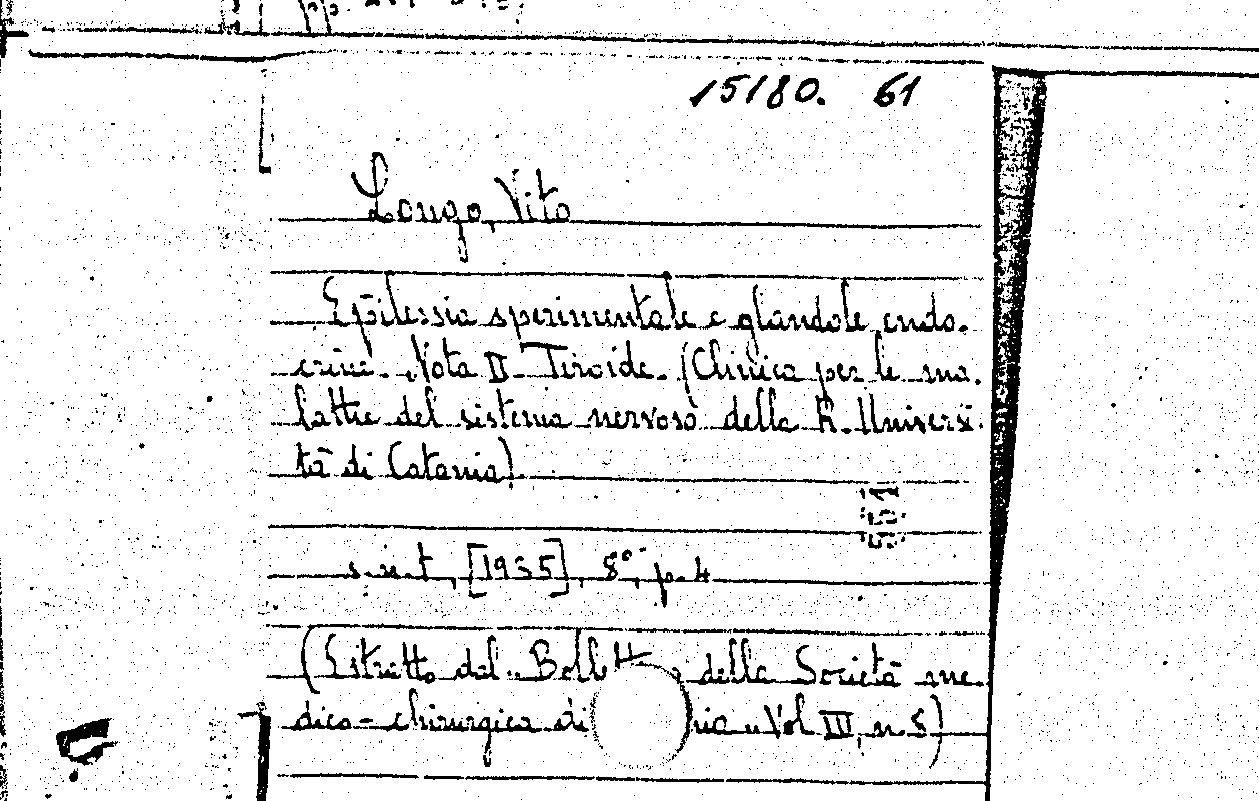 15180. 61
Longo, Vito
Epilessia sperimentale e glandole endo-
crine. Nota II Tiroide. (Clinica per le ma-
lattie del sistema nervoso della R. Universi-
tà di Catania)
s.n.t., [1935], 8°, p. 4
(Estratto dal "Bollett della Società me-
dico-chirurgica di nia" Vol III, n. 5)